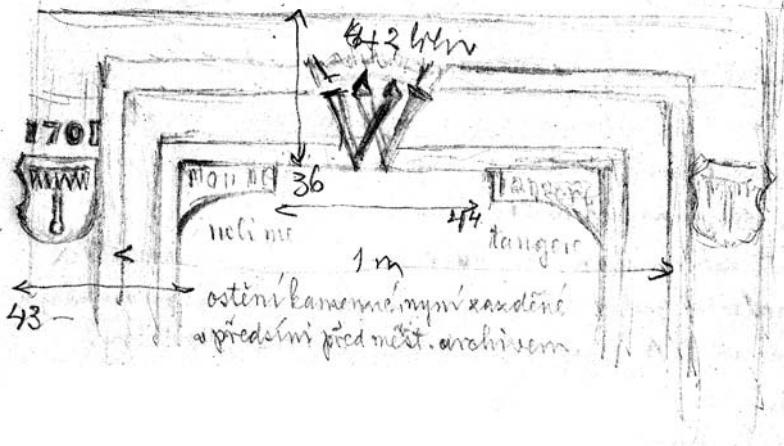 1701
36
44
noli me
tangere
1 m
43 –
ostění kamenné, nyní zazděné
v předsíni před měst. archivem